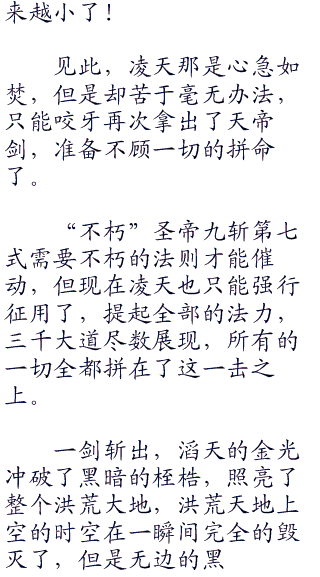 来越小了！
见此，凌天那是心急如
焚，但是却苦于毫无办法，
只能咬牙再次拿出了天帝
剑，准备不顾一切的拼命
了。
“不朽”圣帝九斩第七
式需要不朽的法则才能催
动，但现在凌天也只能强行
征用了，提起全部的法力，
三千大道尽数展现，所有的
一切全都拼在了这一击之
上。
一剑斩出，滔天的金光
冲破了黑暗的桎梏，照亮了
整个洪荒大地，洪荒天地上
空的时空在一瞬间完全的毁
灭了，但是无边的黑